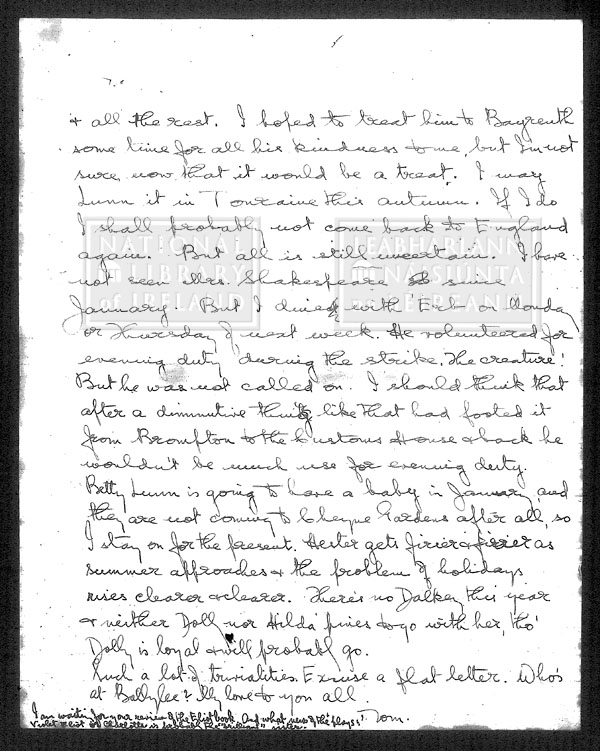 & all the rest. I hoped to treat him to Bayreuth
some time for all his kindness to me, but I'm not
sure now that it would be a treat. I may
Lunn it in Touraine this autumn. If I do
I shall probably not come back to England
again. But all is still uncertain. I have
not seen Mrs. Shakespeare since
January. But I dine with on Monday
or Thursday of next week. He volunteered for
evening duty during the strike. The creature!
But he was not called on. I should think that
after a diminutive thing like that had footed it
from Brompton to the Customs House & back he
wouldn't be much use for evening duty.
Betty Lunn is going to have a baby in January and
they are not coming to Cheyne Gardens after all, so
I stay on for the present. Hester gets as
summer approaches & the problem of holidays
rises clearer & clearer. There's no Dalkey this year
& neither Doll nor Hilda pines to go with her, tho'
Dolly is loyal & will probably go.
Such a lot of trivialities. Excuse a flat letter. Who's
at Ballylee? My love to you all
Tom.
I am waiting for your review of the Eliot book. And what news of the plays?
NATIONAL LIBRARY of IRELAND
LEABHARLANN NÁISIÚNTA na hÉIREANN